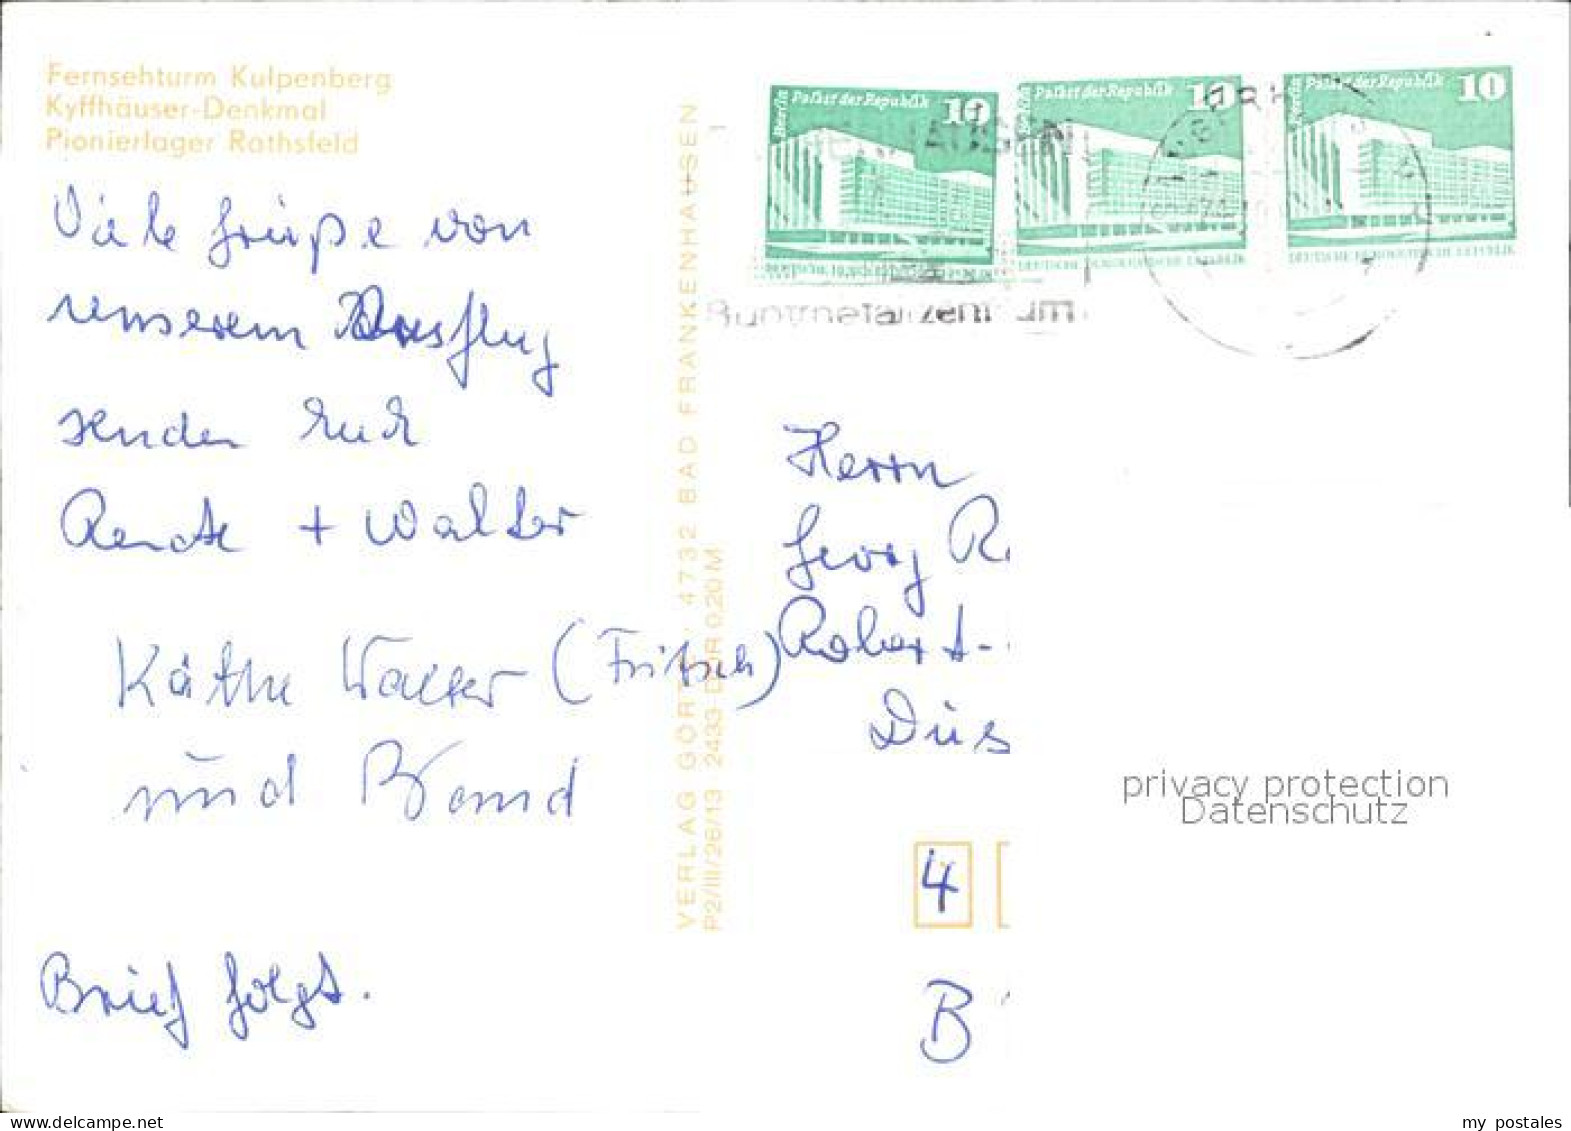 Fernsehturm Kulpenberg
Kyffhäuser-Denkmal
Pionierlager Rathsfeld
Viele Grüße von
unserem Ausflug
senden Euch
Renate + Walter
Käthe Walter (Fritsch)
und Bernd
Brief folgt.
VERLAG GÖRTZ, 4732 BAD FRANKENHAUSEN
P2/III/26/13 2433 DDR 0,20 M
Berlin Palast der Republik 10
DEUTSCHE DEMOKRATISCHE REPUBLIK
Berlin Palast der Republik 10
DEUTSCHE DEMOKRATISCHE REPUBLIK
Berlin Palast der Republik 10
DEUTSCHE DEMOKRATISCHE REPUBLIK
Buntmetallzentrum
Herrn
Georg R
Robert-
Düs
4
B
privacy protection
Datenschutz
my postales